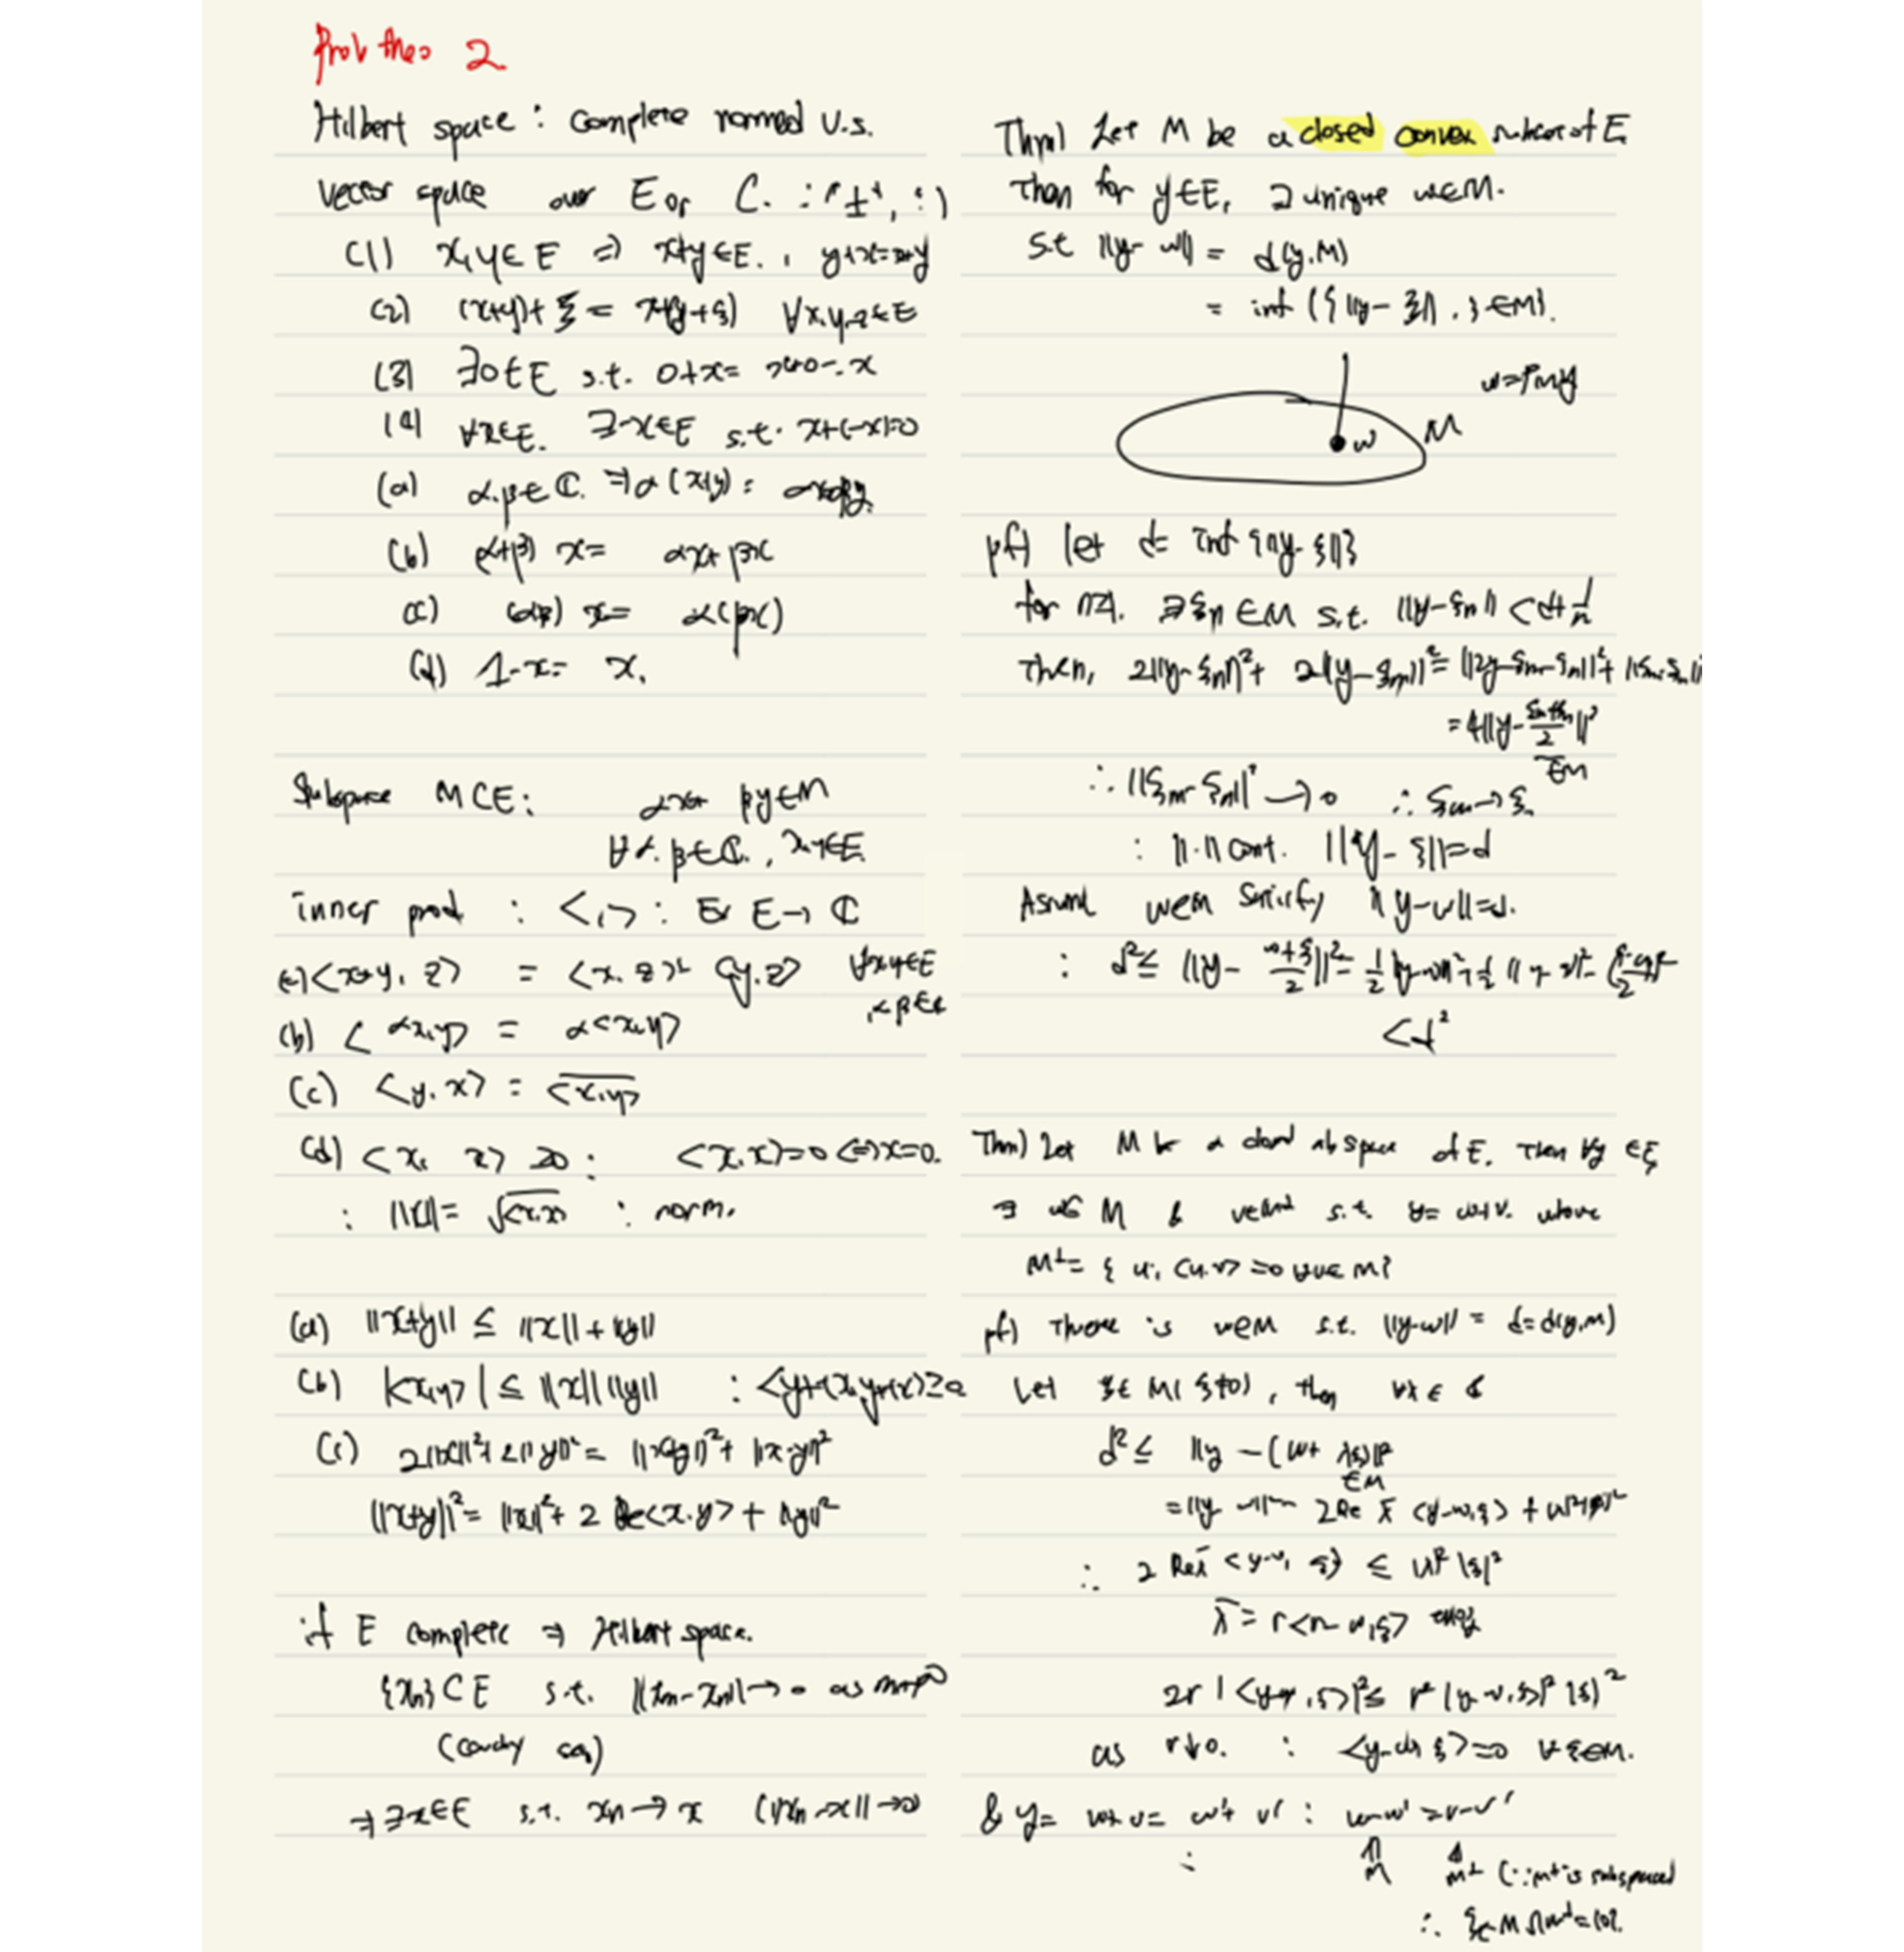 Prob theo 2
Hilbert space : complete normed v.s.
vector space over E or C. : "+", ·)
(1) x,y∈E ⇒ x+y∈E. , y+x=x+y
(2) (x+y)+ξ = x+(y+ξ) ∀x,y,z∈E
(3) ∃0∈E s.t. 0+x= x+0=x
(4) ∀x∈E. ∃-x∈E s.t. x+(-x)=0
(a) α,β∈ℂ. ⇒α(x+y) = αx+αy.
(b) (α+β) x= αx+βx
(c) (αβ) x= α(βx)
(d) 1·x= x.
Subspace M⊂E: αx+ βy∈M
∀α,β∈ℂ., x,y∈E.
inner prod : <,> : E×E→ ℂ
<x+y, z> = <x,z>+<y,z> ∀x,y∈E
,α,β∈ℂ
(b) <αx,y> = α<x,y>
(c) <y,x> = \overline{<x,y>}
(d) <x, x> ≥0 : <x,x>=0 ⇔x=0.
: ||x||= √<x,x> : norm.
(a) ||x+y|| ≤ ||x||+||y||
(b) |<x,y>| ≤ ||x|| ||y|| : <y+tx,y+tx>≥0
(c) 2||x||²+2||y||²= ||x+y||²+ ||x-y||²
||x+y||²= ||x||²+ 2 Re<x,y> + ||y||²
if E complete ⇒ Hilbert space.
{xn}⊂E s.t. ||xm-xn||→0 as
(cauchy seq)
⇒∃x∈E s.t. xn→x (||xn-x||→0)
Thm) Let M be a closed convex subset of E
Then for y∈E, ∃ unique w∈M.
s.t ||y-w|| = d(y,M)
= inf ({||y-ξ||, ξ∈M}.
w=PMy
w M
pf) let d= inf {||y-ξ||}
for n≥1. ∃ξn∈M s.t. ||y-ξn|| <d+1/n
then, 2||y-ξn||²+ 2||y-ξm||²= ||2y-ξm-ξn||²+ ||ξm-ξn||
=4||y-(ξm+ξn)/2||²
∈M
∴ ||ξm-ξn||²→0 ∴ξm→ξ
: ||·|| cont. ||y-ξ||=d
Assume w∈M satisfy ||y-w||=d.
: d²≤ ||y-(w+ξ)/2||²=
<d²
Thm) Let M be a closed subspace of E. Then ∀y ∈E
∃ w∈M & v∈M⊥ s.t. y= w+v. where
M⊥= {u; <u,v> =0 ∀v∈M}
pf) There is w∈M s.t. ||y-w|| = d=d(y,M)
Let ξ∈M(ξ≠0), then ∀λ∈ℂ
d²≤ ||y-(w+λξ)||²
∈M
=||y-w||²- 2Re λ̄ <y-w,ξ> + |λ|²||ξ||²
∴ 2 Re λ̄ <y-w, ξ> ≤ |λ|²|ξ|²
2r |<y-w,ξ>|²≤ r²|<y-w,ξ>|²|ξ|²
as r↓0. : <y-w,ξ>=0 ∀ξ∈M.
& y= w+v= w'+v' : w-w'=v-v'
M M⊥ (∵M⊥ is subspace)
∴ M∩M⊥={0}.